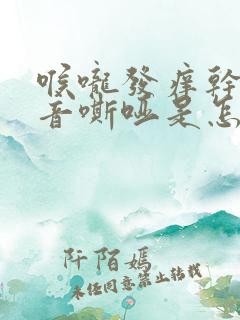 喉嚨發痒幹
音嘶啞是怎
阡陌媽
未经同意禁止转载